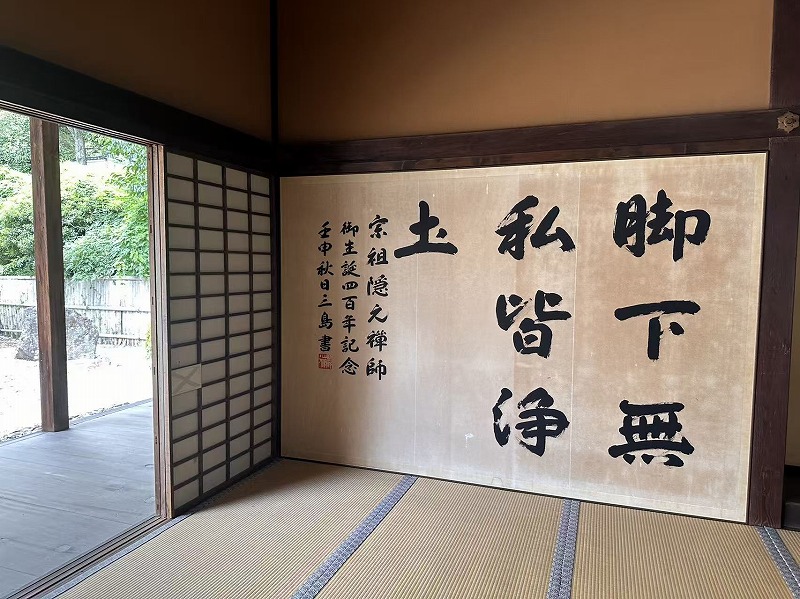 脚下無
私皆浄
土
宗祖隠元禅師
御生誕四百年記念
壬申秋日三鳥書